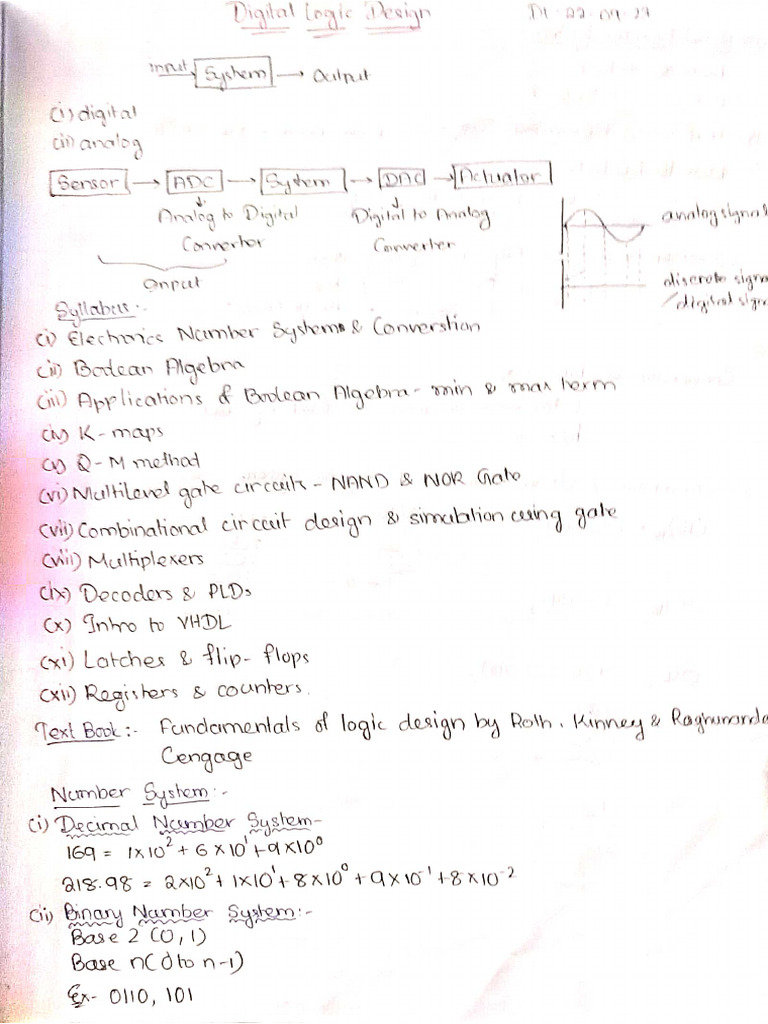 Digital Logic Design
input System → Output
(i) digital
(ii) analog
Sensor → ADC → System → DAC → Actuator
Analog to Digital Converter
Digital to Analog Converter
analog signal
Input
discrete sign
/digital sign
Syllabus:-
(i) Electronics Number Systems & Converstion
(ii) Boolean Algebra
(iii) Applications of Boolean Algebra - min & max term
(iv) K-maps
(v) Q-M method
(vi) Multilevel gate circuits - NAND & NOR Gate
(vii) Combinational circuit design & simulation using gate
(viii) Multiplexers
(ix) Decoders & PLDs
(x) Intro to VHDL
(xi) Latches & flip-flops
(xii) Registers & counters.
Text Book:- Fundamentals of logic design by Roth, Kinney &
Cengage
Number System:-
(i) Decimal Number System-
169 = 1×10² + 6×10¹ + 9×10⁰
218.98 = 2×10² + 1×10¹ + 8×10⁰ + 9×10⁻¹ + 8×10⁻²
(ii) Binary Number System:-
Base 2 (0,1)
Base n(0 to n-1)
Ex- 0110, 101